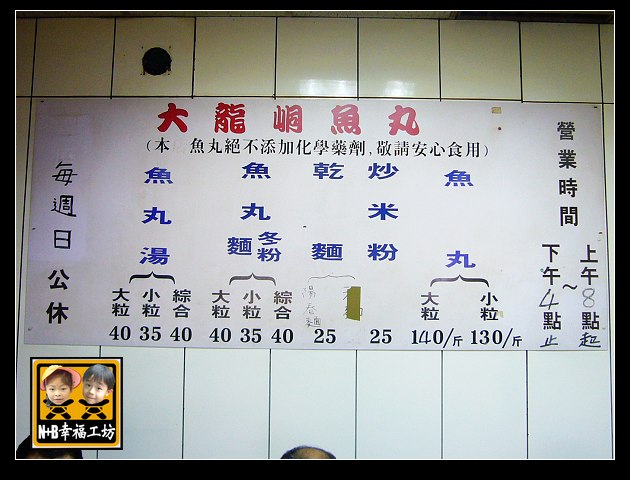 大龍峒魚丸
(本 魚丸絕不添加化學藥劑,敬請安心食用)
每週日公休
魚丸湯
大粒 小粒 綜合
40 35 40
魚丸麵 冬粉
大粒 小粒 綜合
40 35 40
乾麵
湯
麵
25
炒米粉
25
魚丸
大粒 小粒
140/斤 130/斤
營業時間
上午8點起
~
下午4點止
N+B幸福工坊